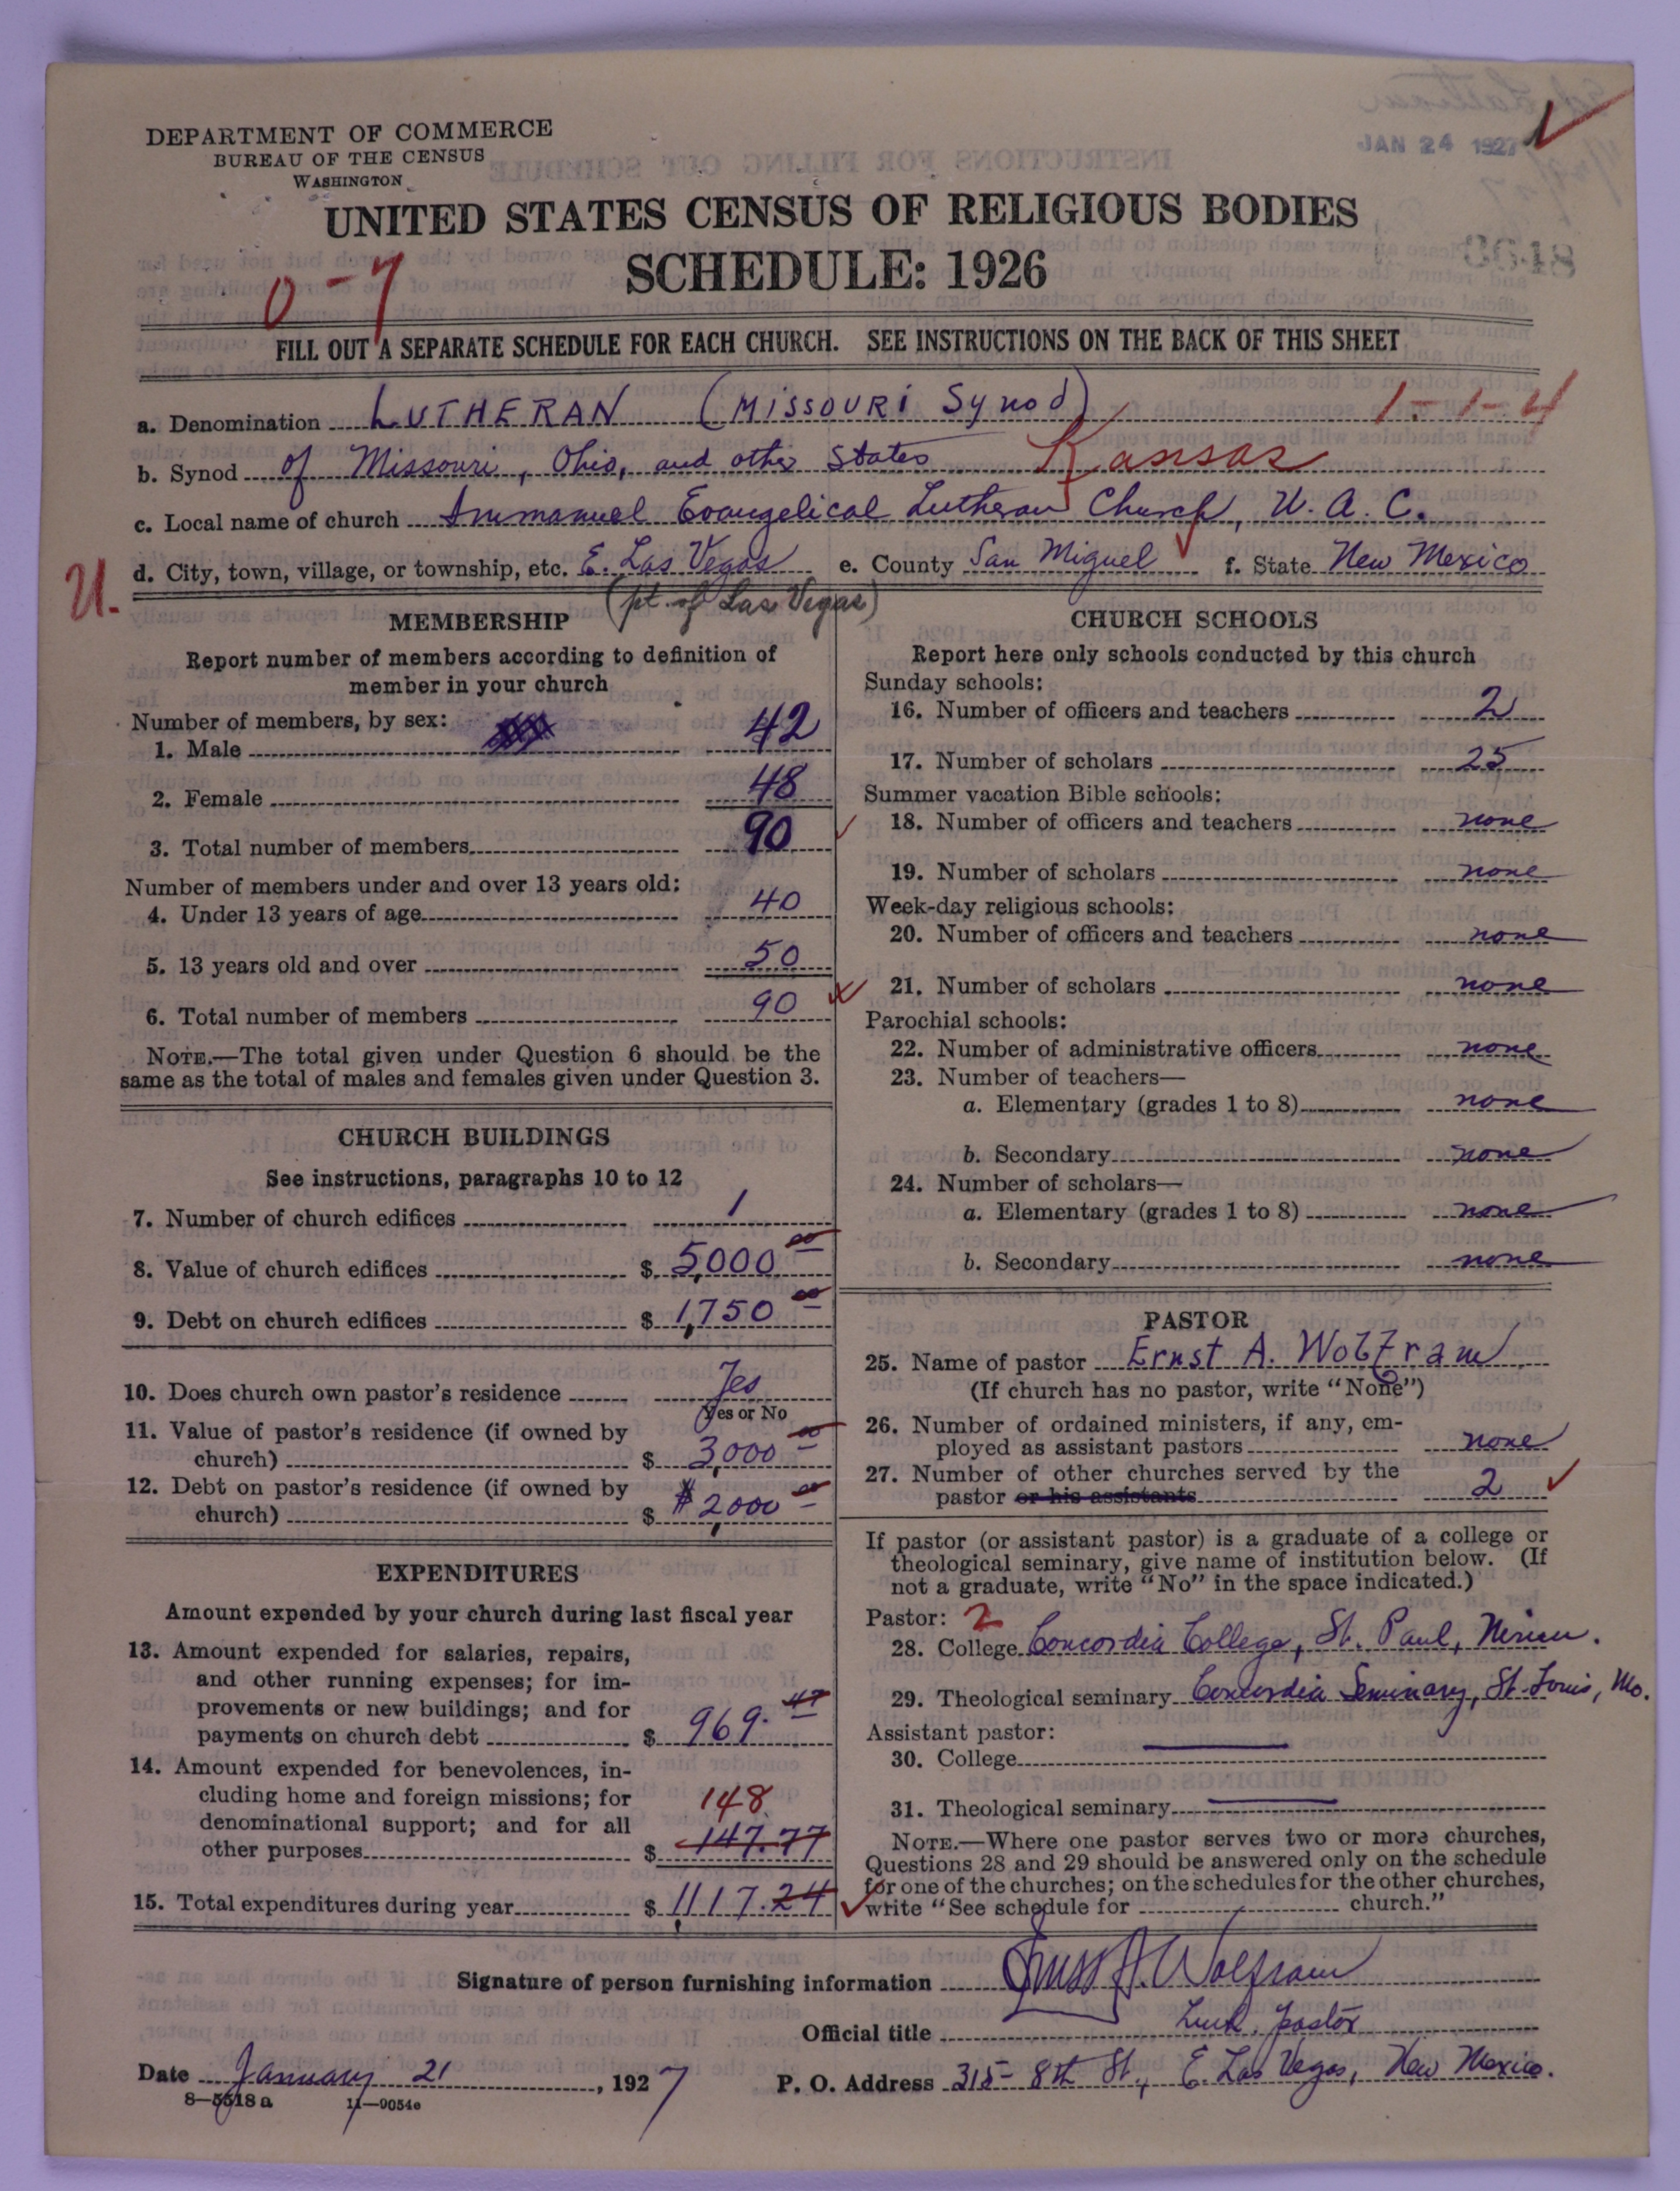 DEPARTMENT OF COMMERCE
BUREAU OF THE CENSUS
WASHINGTON
JAN 24 1927
UNITED STATES CENSUS OF RELIGIOUS BODIES
SCHEDULE: 1926
0-7
FILL OUT A SEPARATE SCHEDULE FOR EACH CHURCH. SEE INSTRUCTIONS ON THE BACK OF THIS SHEET
a. Denomination LUTHERAN (MISSOURI Synod) 1-1-4
b. Synod of Missouri, Ohio, and other States Kansas
c. Local name of church Immanuel Evangelical Lutheran Church, U. A. C.
U. d. City, town, village, or township, etc. E. Las Vegas e. County San Miguel f. State New Mexico
(pt. of Las Vegas)
MEMBERSHIP
Report number of members according to definition of
member in your church
Number of members, by sex:
1. Male 42
2. Female 48
3. Total number of members 90
Number of members under and over 13 years old:
4. Under 13 years of age 40
5. 13 years old and over 50
6. Total number of members 90
NOTE.—The total given under Question 6 should be the
same as the total of males and females given under Question 3.
CHURCH BUILDINGS
See instructions, paragraphs 10 to 12
7. Number of church edifices 1
8. Value of church edifices $ 5,000 00
9. Debt on church edifices $ 1,750 00
10. Does church own pastor's residence Yes
Yes or No
11. Value of pastor's residence (if owned by
church) $ 3,000 00
12. Debt on pastor's residence (if owned by
church) $ $2,000 00
EXPENDITURES
Amount expended by your church during last fiscal year
13. Amount expended for salaries, repairs,
and other running expenses; for im-
provements or new buildings; and for
payments on church debt $ 969. 47
14. Amount expended for benevolences, in-
cluding home and foreign missions; for 148
denominational support; and for all
other purposes $ 147.77
15. Total expenditures during year $ 1,117.24
CHURCH SCHOOLS
Report here only schools conducted by this church
Sunday schools:
16. Number of officers and teachers 2
17. Number of scholars 25
Summer vacation Bible schools:
18. Number of officers and teachers none
19. Number of scholars none
Week-day religious schools:
20. Number of officers and teachers none
21. Number of scholars none
Parochial schools:
22. Number of administrative officers none
23. Number of teachers—
a. Elementary (grades 1 to 8) none
b. Secondary none
24. Number of scholars—
a. Elementary (grades 1 to 8) none
b. Secondary none
PASTOR
25. Name of pastor Ernst A. Wolfram
(If church has no pastor, write "None")
26. Number of ordained ministers, if any, em-
ployed as assistant pastors none
27. Number of other churches served by the
pastor or his assistants 2
If pastor (or assistant pastor) is a graduate of a college or
theological seminary, give name of institution below. (If
not a graduate, write "No" in the space indicated.)
Pastor: 2
28. College Concordia College, St. Paul, Minn.
29. Theological seminary Concordia Seminary, St. Louis, Mo.
Assistant pastor:
30. College
31. Theological seminary
NOTE.—Where one pastor serves two or more churches,
Questions 28 and 29 should be answered only on the schedule
for one of the churches; on the schedules for the other churches,
write "See schedule for church."
Signature of person furnishing information Ernst A. Wolfram
Official title Luth. pastor
Date January 21, 1927 P. O. Address 315- 8th St., E. Las Vegas, New Mexico.
8-5518 a 11-9054e